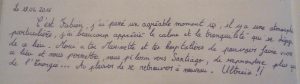 Le 13.05.2016
C'est Fabien, j'ai passé un agréable moment ici, il y a une atmosphère
particulière, j'ai beaucoup apprécié le calme et la tranquillité qui se dégage
de ce lieu. Merci à toi et les hospitaliers de pouvoir faire vivre
ce lieu et nous permettre, nous pèlerins vers Santiago, de reprendre plus
de l'énergie... Au plaisir de se retrouver à nouveau. Ultreïa !!